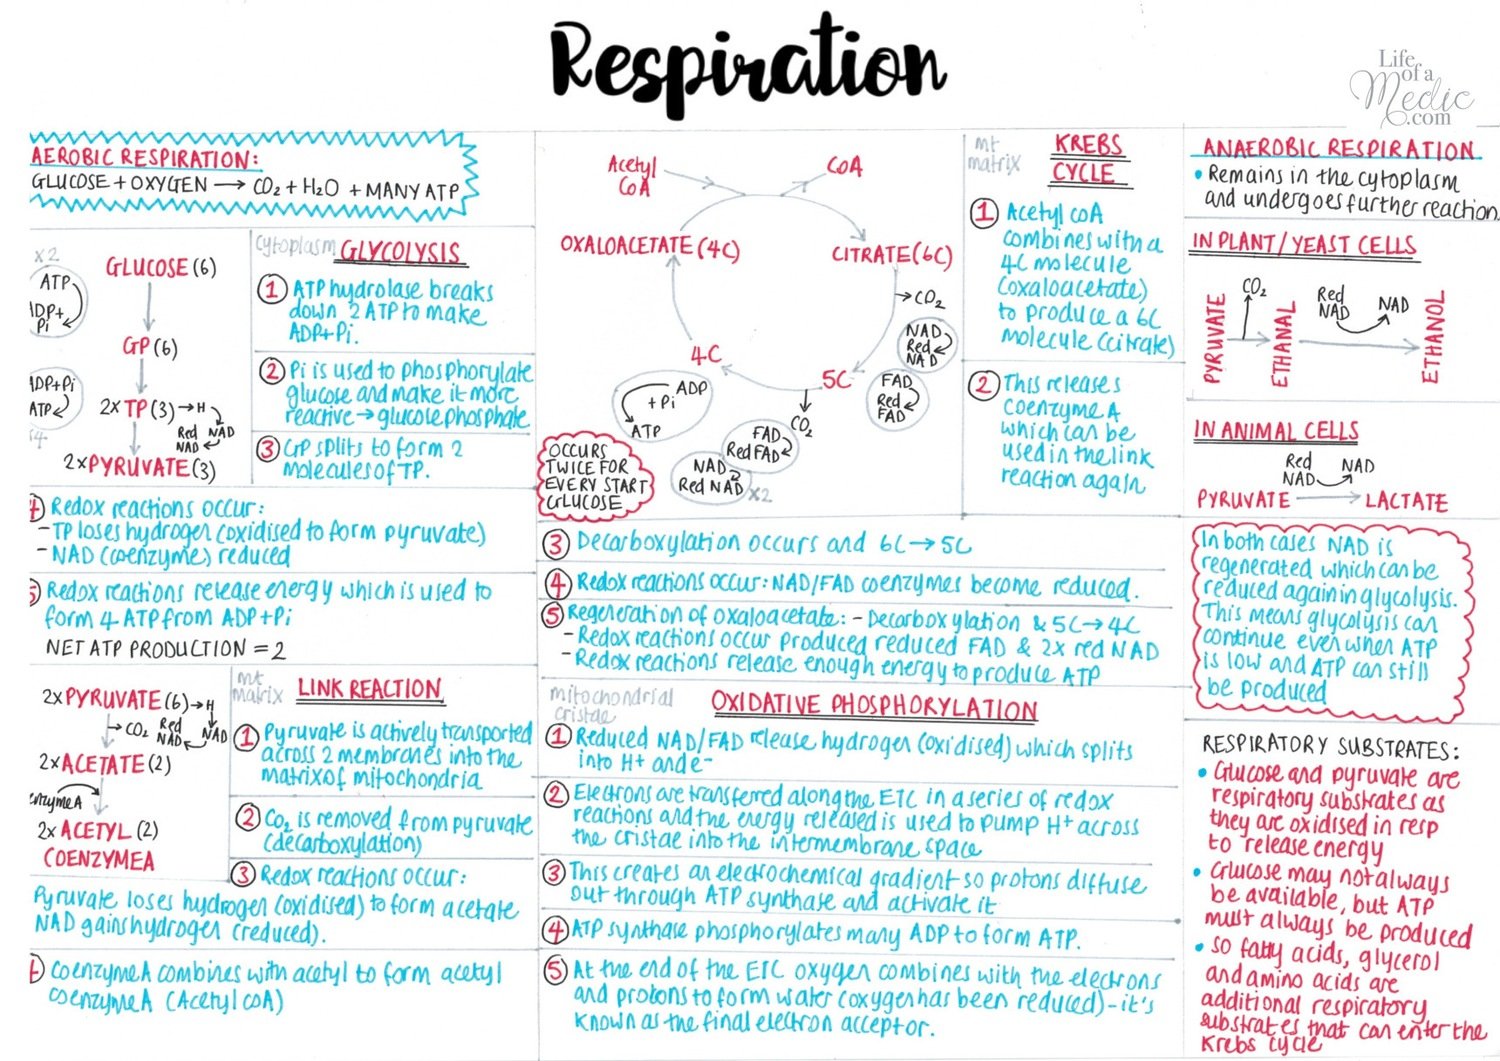 Respiration
Life
of a
Medic
.com
AEROBIC RESPIRATION:
GLUCOSE + OXYGEN → CO₂ + H₂O + MANY ATP
x2
ATP
ADP+
Pi
ADP+Pi
ATP
x4
GLUCOSE (6)
GP (6)
2x TP (3) → H
Red NAD
NAD
2x PYRUVATE (3)
cytoplasm GLYCOLYSIS
① ATP hydrolase breaks
down 2 ATP to make
ADP+Pi.
② Pi is used to phosphorylate
glucose and make it more
reactive → glucose phosphate
③ GP splits to form 2
molecules of TP.
④ Redox reactions occur:
- TP loses hydrogen (oxidised to form pyruvate)
- NAD (coenzyme) reduced
⑤ Redox reactions release energy which is used to
form 4 ATP from ADP+Pi
NET ATP PRODUCTION = 2
2x PYRUVATE (6) → H
→ CO₂ Red NAD
NAD
2x ACETATE (2)
enzyme A
2x ACETYL (2)
COENZYME A
mt
matrix LINK REACTION
① Pyruvate is actively transported
across 2 membranes into the
matrix of mitochondria
② CO₂ is removed from pyruvate
(decarboxylation)
③ Redox reactions occur:
Pyruvate loses hydrogen (oxidised) to form acetate
NAD gains hydrogen (reduced).
④ Coenzyme A combines with acetyl to form acetyl
coenzyme A (Acetyl coA)
Acetyl
CoA
CoA
OXALOACETATE (4C)
CITRATE (6C)
→ CO₂
NAD
Red
NAD
4C
5C
FAD
Red
FAD
ADP
+ Pi
ATP
CO₂
FAD
Red FAD
NAD
Red NAD x2
OCCURS
TWICE FOR
EVERY START
GLUCOSE
mt
matrix
KREBS
CYCLE
① Acetyl coA
combines with a
4C molecule
(oxaloacetate)
to produce a 6C
molecule (citrate)
② This releases
coenzyme A
which can be
used in the link
reaction again
③ Decarboxylation occurs and 6C → 5C
④ Redox reactions occur: NAD/FAD coenzymes become reduced.
⑤ Regeneration of oxaloacetate: - Decarboxylation & 5C → 4C
- Redox reactions occur produced reduced FAD & 2x red NAD
- Redox reactions release enough energy to produce ATP
mitochondrial
cristae
OXIDATIVE PHOSPHORYLATION
① Reduced NAD/FAD release hydrogen (oxidised) which splits
into H+ and e-
② Electrons are transferred along the ETC in a series of redox
reactions and the energy released is used to pump H+ across
the cristae into the intermembrane space
③ This creates an electrochemical gradient so protons diffuse
out through ATP synthase and activate it
④ ATP synthase phosphorylates many ADP to form ATP.
⑤ At the end of the ETC oxygen combines with the electrons
and protons to form water (oxygen has been reduced) - it's
known as the final electron acceptor.
ANAEROBIC RESPIRATION
• Remains in the cytoplasm
and undergoes further reaction
IN PLANT/YEAST CELLS
PYRUVATE
CO₂
ETHANAL
Red
NAD
NAD
ETHANOL
IN ANIMAL CELLS
Red
NAD
NAD
PYRUVATE → LACTATE
In both cases NAD is
regenerated which can be
reduced again in glycolysis.
This means glycolysis can
continue even when ATP
is low and ATP can still
be produced
RESPIRATORY SUBSTRATES:
• Glucose and pyruvate are
respiratory substrates as
they are oxidised in resp
to release energy
• Glucose may not always
be available, but ATP
must always be produced
• So fatty acids, glycerol
and amino acids are
additional respiratory
substrates that can enter the
Krebs cycle